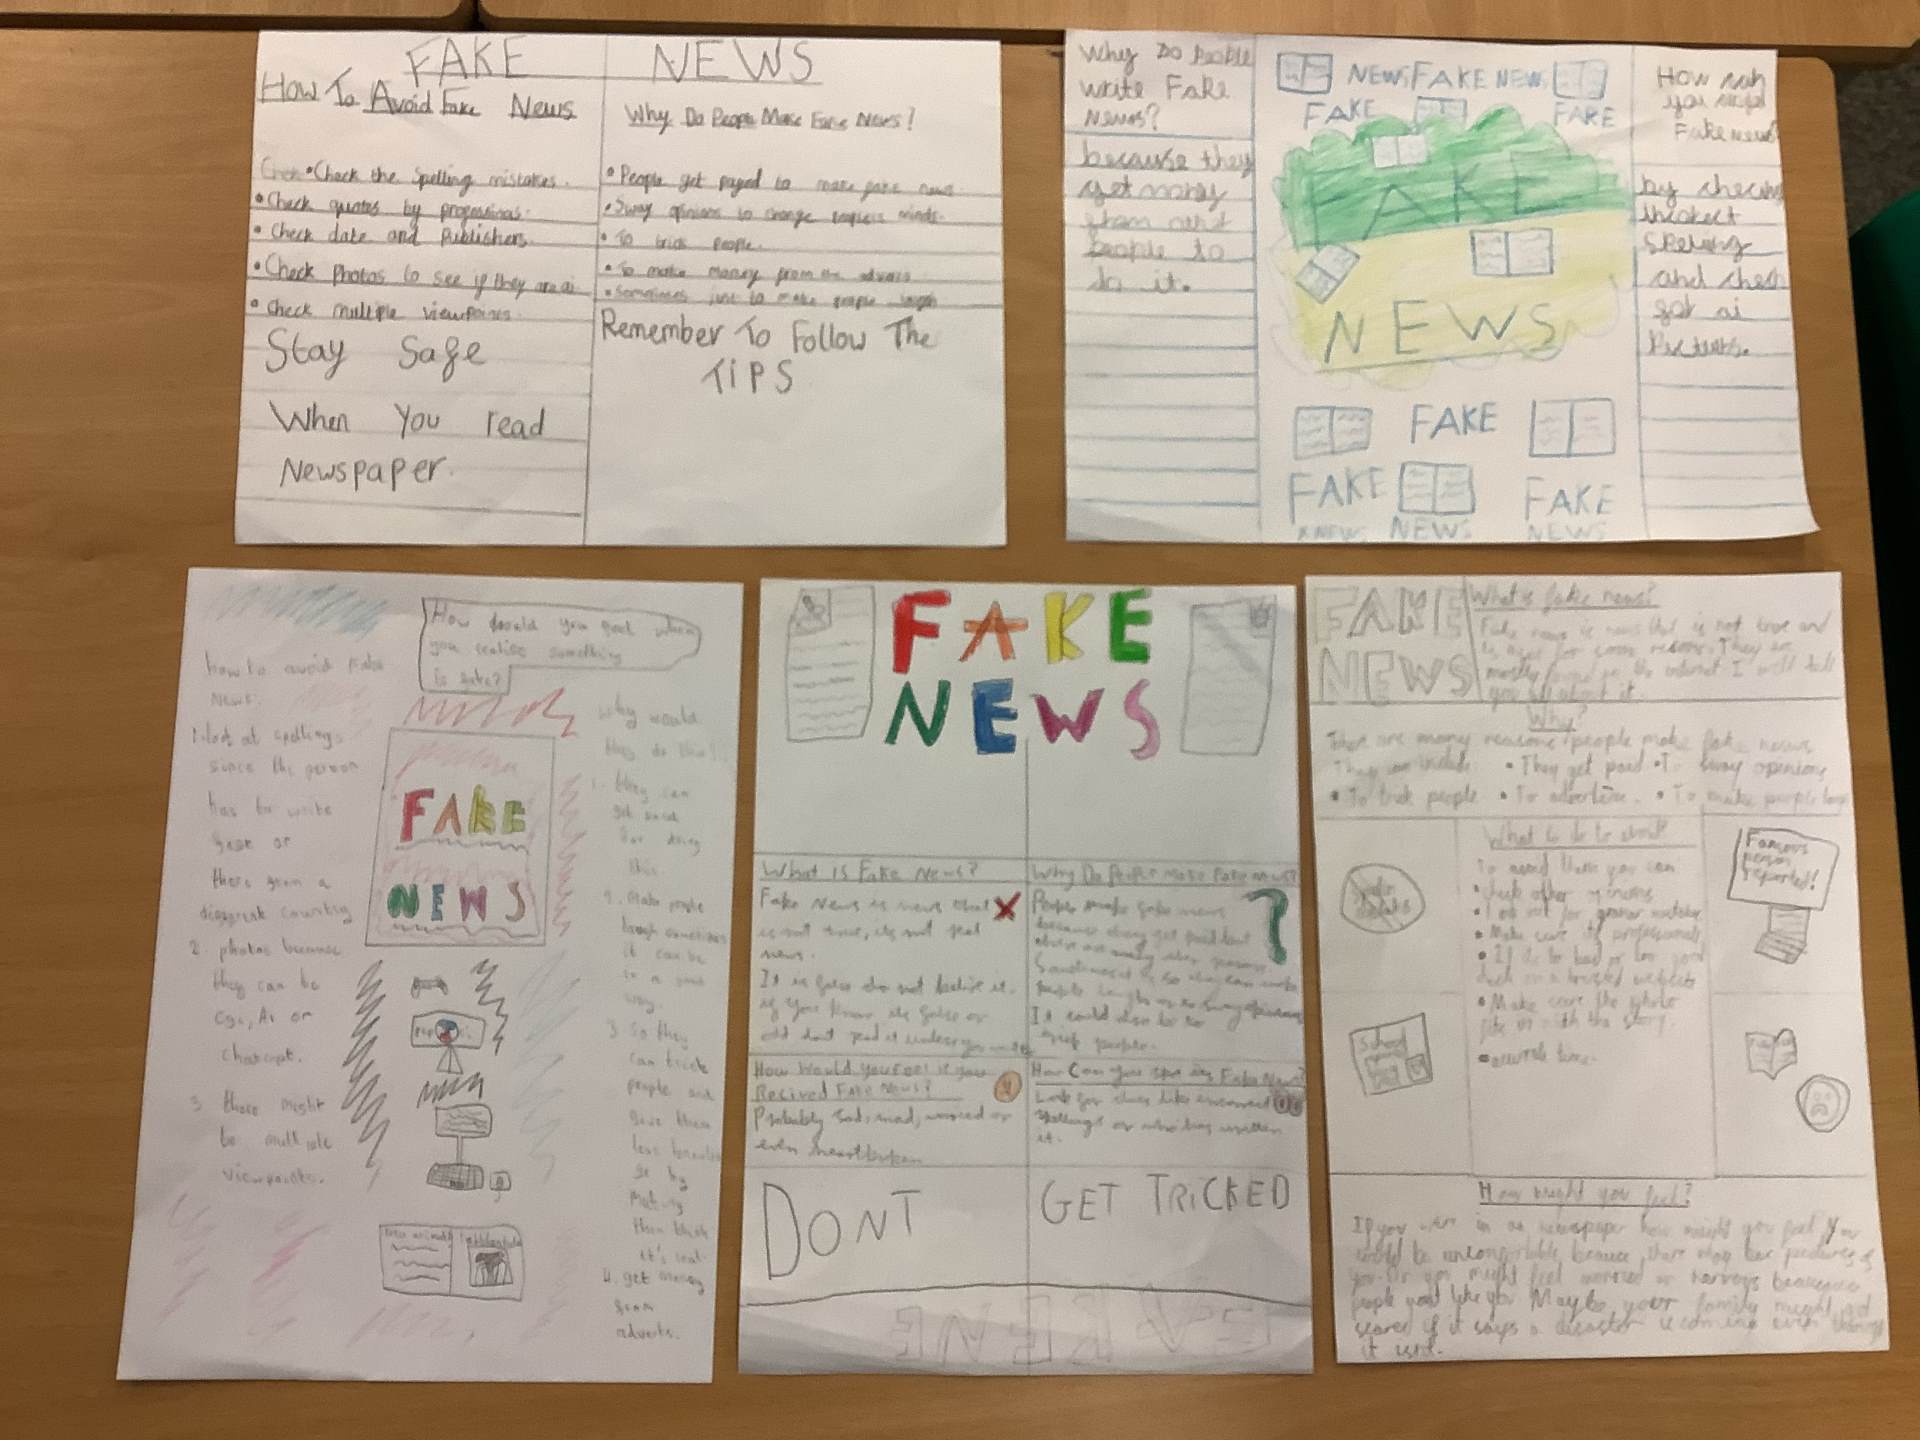 FAKE NEWS
How To Avoid Fake News
• Check the spelling mistakes.
• Check quotes by
• Check date and Publishers.
• Check photos to see if they are ai
• Check multiple viewpoints.
Stay Safe
When You read
Newspaper.
Why Do People Make Fake News?
• People get payed to make fake news
• Sway opinions to change minds.
• To trick people.
• To make money from the adverts
• Sometimes just to make people laugh
Remember To Follow The
TIPS
Why Do People
write Fake
News?
because they
get money
people to
do it.
NEWS FAKE NEWS
FAKE FAKE
FAKE
NEWS
FAKE
FAKE FAKE
NEWS NEWS
How
you
Fake news?
by
spelling
and check
ai
How should you feel when
you realise something
is fake?
how to avoid Fake
News:
1. look at spellings
since the person
has to write
fast or
there from a
country
2. photos because
they can be
cgi, Ai or
Chatgpt.
3. there might
be multiple
viewpoints.
FAKE
NEWS
why would
they do this?
1. they can
get paid
for doing
this.
2. Make people
laugh sometimes
it can be
in a
way.
3. So they
can trick
people and
by
then think
it's real.
4. get money
from
adverts.
FAKE
NEWS
What is Fake News?
Fake News is news that
is not true, its not real
news.
It is false do not belive it.
if you know its false or
Why Do People Make Fake News?
People make fake news
because they get paid but
there are many other reasons.
Sometimes it is so they can make
people laugh or to sway opinions
It could also be to
trick people.
How Would You Feel if you
Recived Fake News?
Probably sad, mad, worried or
even heartbroken
How Can You Spot its Fake News?
Look for clues like incorrect
spellings or who has written
it.
DONT GET TRICKED
FAKE
NEWS
What is fake news?
Fake news is news that is not true and
is made for some reason. They are
mostly found on the internet I will tell
you all about it.
Why?
There are many reasons people make fake news
They can include: • They get paid • To sway opinions
• To trick people • To advertise. • To make people laugh
What to do to avoid?
To avoid these you can
• check other
• Look out for
• Make sure it's professionals
• If its to bad or too good
check on a trusted website
• Make sure the photo
fits in with the story.
• accurate time.
Famous
person
reported!
School
How might you feel?
If you were in a newspaper how might you feel? You
would be uncomfortable because there may be pictures of
you. Or you might feel worried or nervous because
people like you. Maybe your family might get
scared if it says a disaster is coming even though
it isnt.